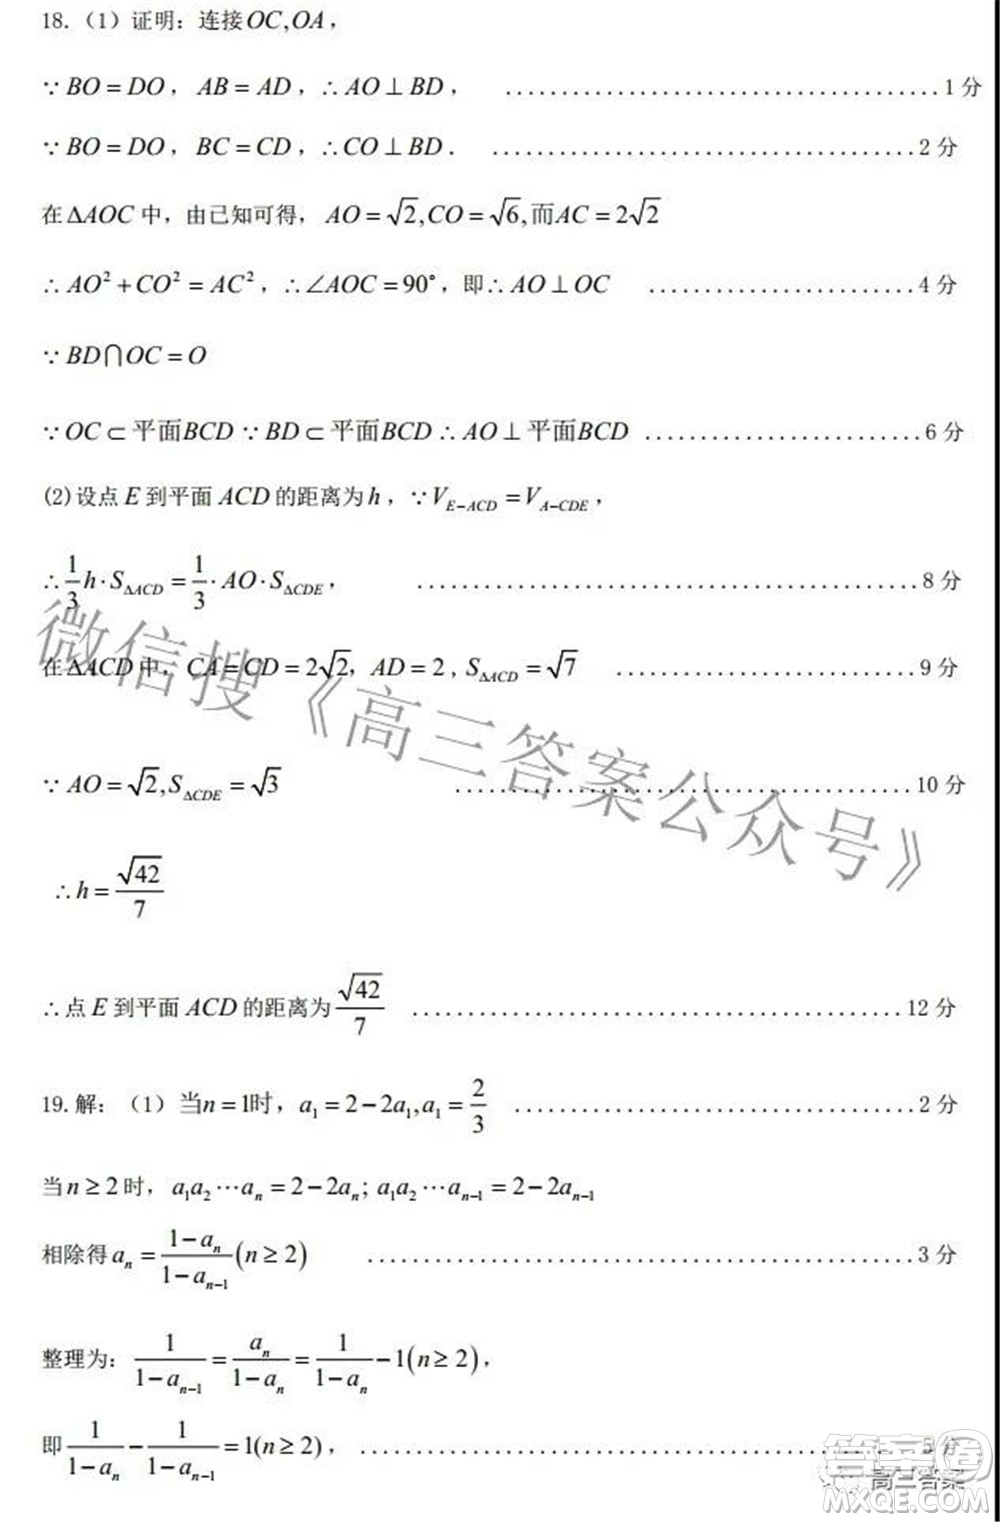 18.（1）证明：连接OC,OA，
∵BO=DO，AB=AD，∴AO⊥BD， .......................................1分
∵BO=DO，BC=CD，∴CO⊥BD． ......................................2分
在ΔAOC中，由已知可得，AO=√2,CO=√6,而AC=2√2
∴AO²+CO²=AC²，∴∠AOC=90°，即∴AO⊥OC ........................4分
∵BD∩OC=O
∵OC⊂平面BCD∵BD⊂平面BCD∴AO⊥平面BCD .........................6分
(2)设点E到平面ACD的距离为h，∵V_{E-ACD}=V_{A-CDE}，
∴1/3 h·S_{ΔACD}=1/3·AO·S_{ΔCDE}， .............................................8分
在ΔACD中，CA=CD=2√2，AD=2，S_{ΔACD}=√7 ...........................9分
∵AO=√2,S_{ΔCDE}=√3 .........................................10分
∴h=√42/7
∴点E到平面ACD的距离为√42/7 ............................................12分
19.解：（1）当n=1时，a₁=2-2a₁,a₁=2/3 ....................................2分
当n≥2时，a₁a₂⋯aₙ=2-2aₙ；a₁a₂⋯aₙ₋₁=2-2aₙ₋₁
相除得aₙ=(1-aₙ)/(1-aₙ₋₁)(n≥2) .................................................3分
整理为：1/(1-aₙ₋₁)=aₙ/(1-aₙ)=1/(1-aₙ)-1(n≥2)，
即1/(1-aₙ)-1/(1-aₙ₋₁)=1(n≥2)， ..................................................5分
微信搜《高三答案公众号》
答案圈
高三答案
MXQE.COM